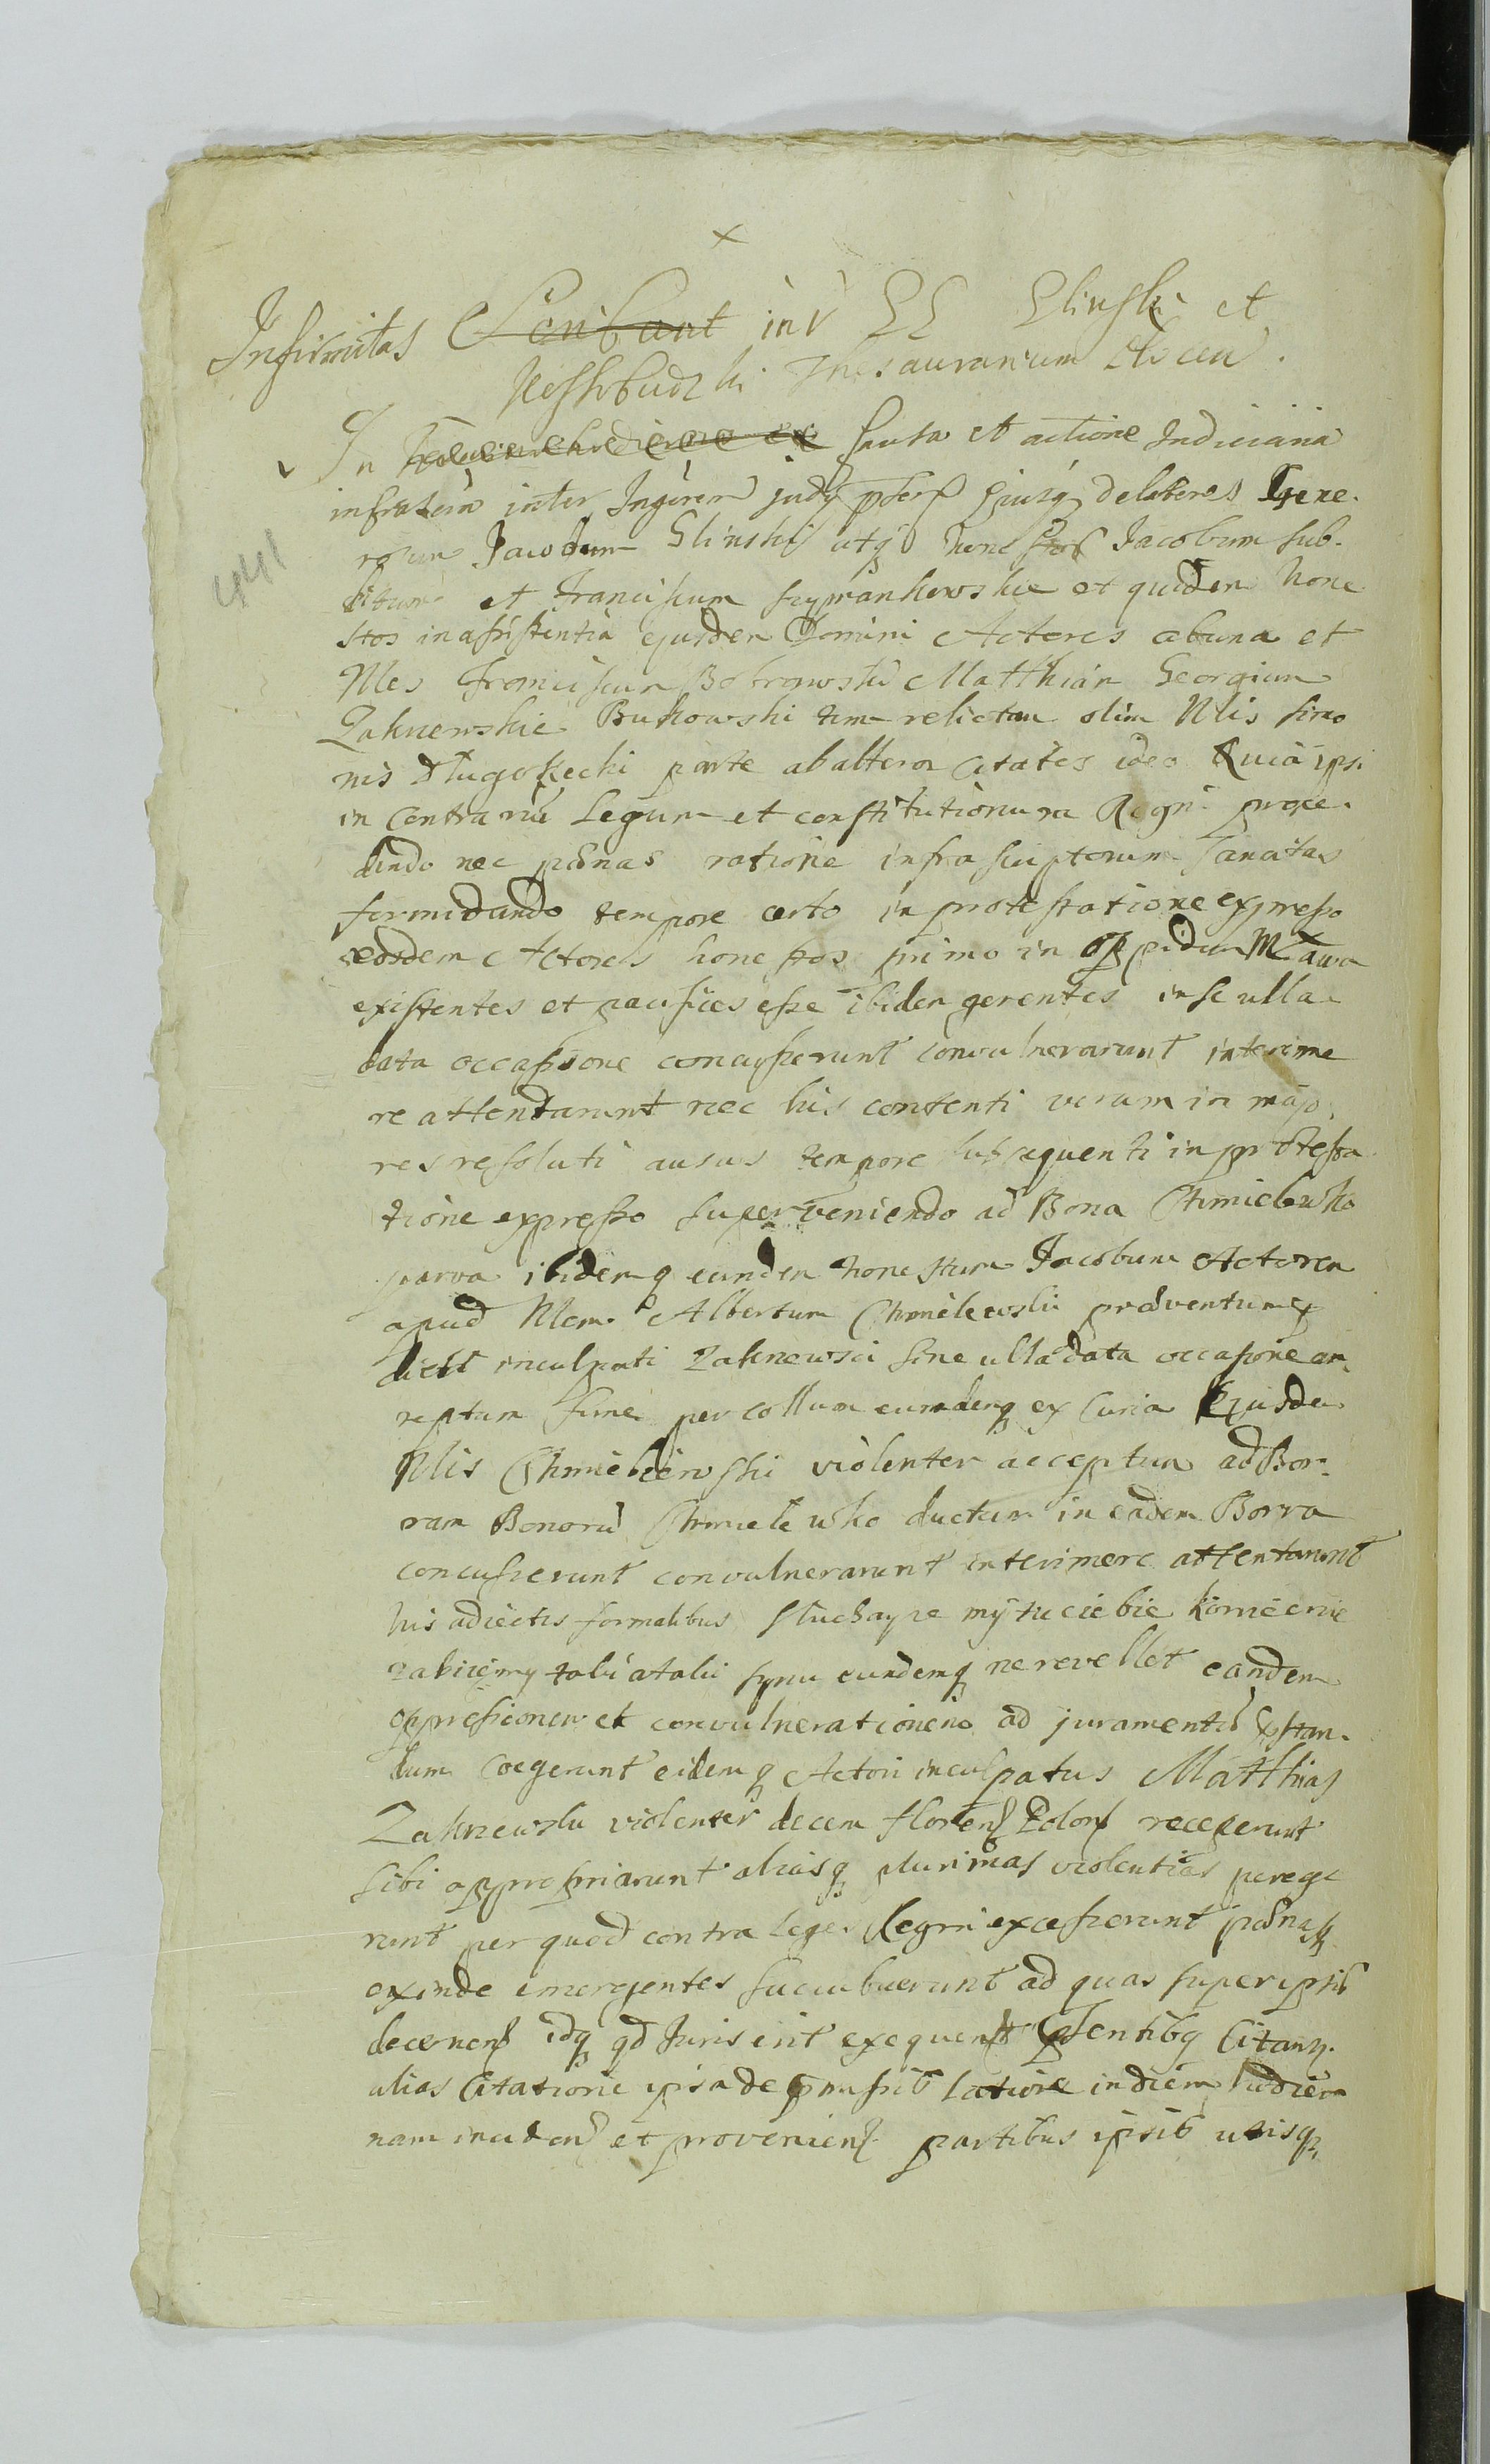 Infirmitas inr GG Glinski et
Thesaurarium
In Causa et actione Judiciaria
infrascrip inter Ingerem judij ejusq delatores Gene-
rosum Glinski atq hone stos Jacobum sub-
ditum et Franciscum Szymankowskie et quidem hone
stos in assistentia ejusdem Domini Actores ab una et
Nles Franciscum Bobrowski Matthiam Georgium
Zakrzewskie Bukowski relictam olim Nlis Simo
nis parte ab altera Citatos ideo Quia ipsi
in Contrariu Legum et constitutionum Regni proce-
dendo nec pænas ratione infrascriptorum sancitas
formidando tempore certo in protestatione expresso
eosdem Actores honestos primo in oppidum Mława
existentes et pacifices esse ibidem gerentes in se ulla
data occassione concusserunt convulnerarunt interime
re attentarunt nec his contenti verum in majo
res resoluti ausus tempore subsequenti in protesta
tione expresso superveniendo ad Bona Chmielewko
parva ibidemq eundem honestum Jacobum Actorem
apud Nlem Albertum Chmielewski præventumq
dicti inculpati Zakrzewsci sine ulla data occasione ar
reptum fune per collum eumdemq ex Curia Ejusdem
Nlis Chmielewski violenter acceptum ad Bor-
ram Bonorū Chmielewko ductum in eadem Borra
concusserunt convulnerarunt interimere attentarunt
his adiectis formalibus słuchayze my tu ciebie koniecnie
zabijemy taki a taki synu eundemq ne revellet eandem
oppressionem et convulnerationem ad juramentū
dum coegerunt eidemq Actori inculpatus Matthias
Zakrzewski violenter decem floren Polon receperunt
sibi appropriarunt aliasq plurimas violentias perege
runt per quod contra leges Regni excesserunt pænasq
exinde emergentes succubuerunt ad quas super ipsis
decernen idq qd Juris erit exequen Citan.
alias Citatione ipsa de latiore in diem hodier
nam inciden et provenien partibus ipsis utisq